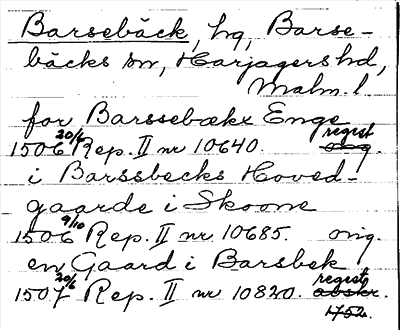 Barsebäck, hg, Barse-
bäcks sn, Harjagers hd,
Malm. l.
for Barssebækx Enge
1506 20/4 Rep. II nr 10640. regist. orig.
i Barssbecks Hoved-
gaarde i Skoone
1506 9/10 Rep. II nr 10685. orig.
en Gaard i Barsbek
1507 20/6 Rep. II nr 10820. regist. afskr.
1752.